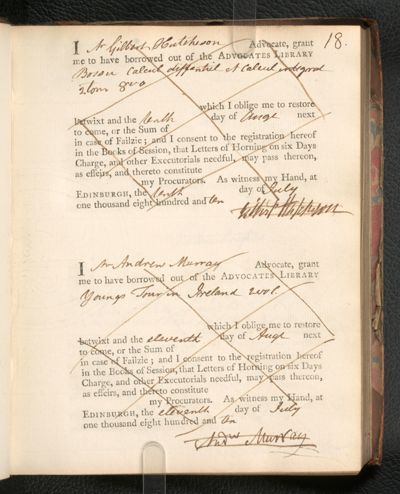 18.
I Mr Gilbert Hutcheson Advocate, grant
me to have borrowed out of the ADVOCATES LIBRARY
Bossu Calcul differentiel et Calcul integral
2 tom 8vo
which I oblige me to restore
betwixt and the tenth day of Augt next
to come, or the Sum of
in case of Failzie; and I consent to the registration hereof
in the Books of Session, that Letters of Horning on six Days
Charge, and other Executorials needful, may pass thereon,
as effeirs, and thereto constitute
my Procurators. As witness my Hand, at
EDINBURGH, the tenth day of July
one thousand eight hundred and ten
Gilbert Hutcheson
I Mr Andrew Murray Advocate, grant
me to have borrowed out of the ADVOCATES LIBRARY
Youngs Tour in Ireland 2 vol.
which I oblige me to restore
betwixt and the eleventh day of Augt next
to come, or the Sum of
in case of Failzie; and I consent to the registration hereof
in the Books of Session, that Letters of Horning on six Days
Charge, and other Executorials needful, may pass thereon,
as effeirs, and thereto constitute
my Procurators. As witness my Hand, at
EDINBURGH, the eleventh day of July
one thousand eight hundred and ten
Andw Murray